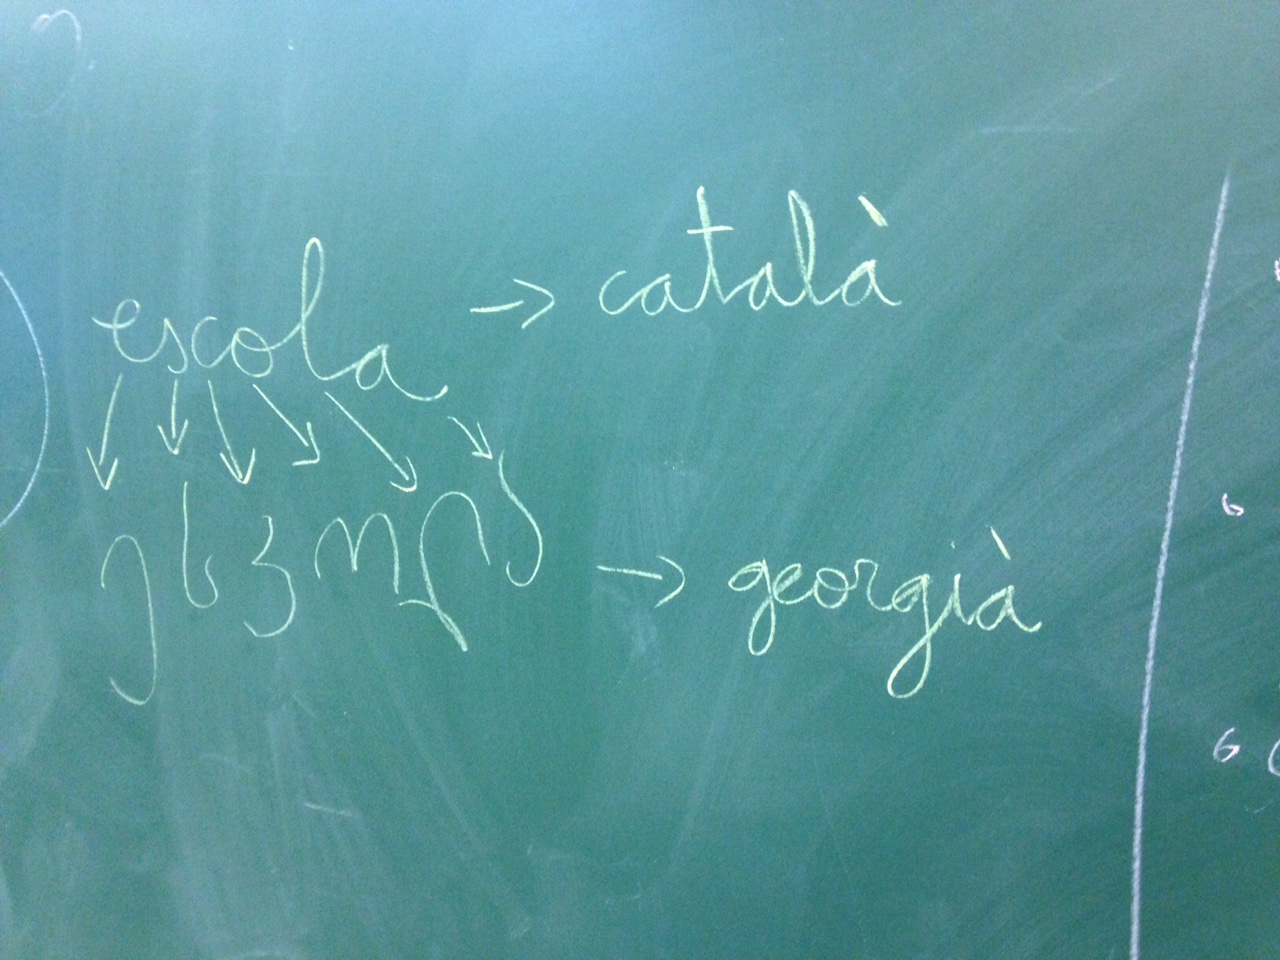 escola → català
ესკოლა → georgià
6
6